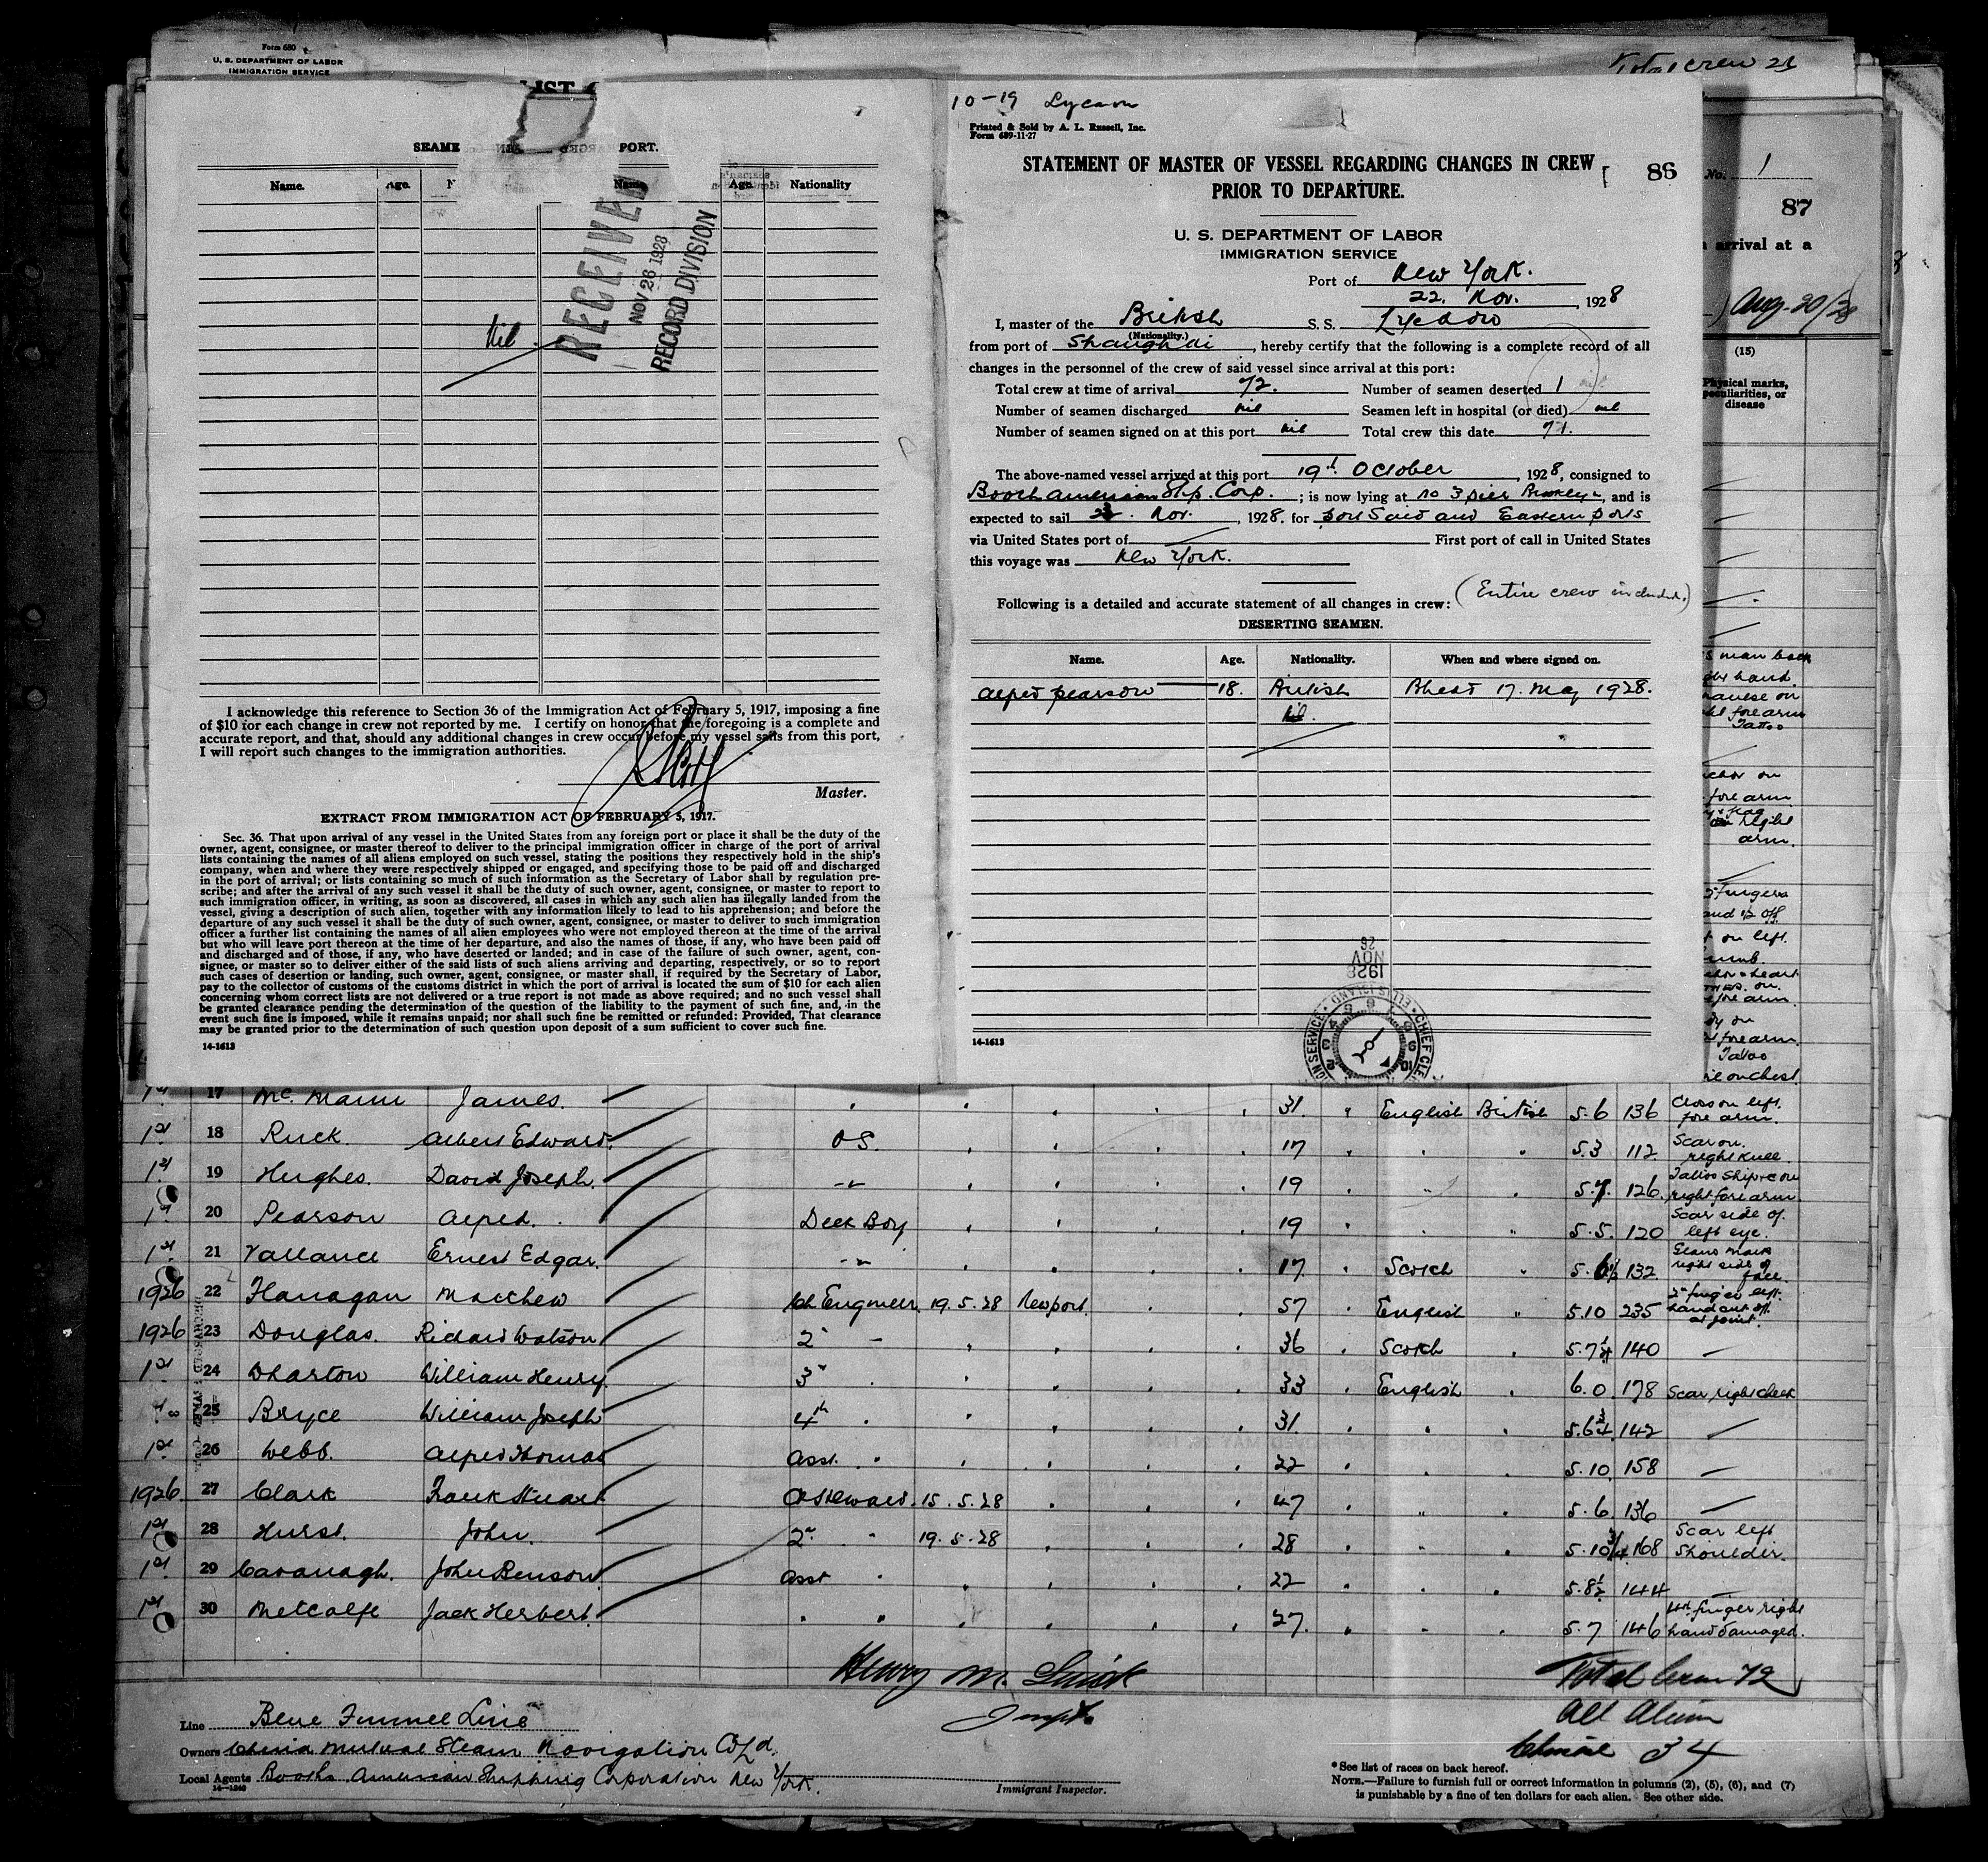 Form 680
U. S. DEPARTMENT OF LABOR
IMMIGRATION SERVICE
Total crew
LIST
SEAME PORT.
Name. Age. N Name Age. Nationality
RECEIVED
NOV 26 1928
RECORD DIVISION
Nil
I acknowledge this reference to Section 36 of the Immigration Act of February 5, 1917, imposing a fine
of $10 for each change in crew not reported by me. I certify on honor that the foregoing is a complete and
accurate report, and that, should any additional changes in crew occur before my vessel sails from this port,
I will report such changes to the immigration authorities.
Master.
EXTRACT FROM IMMIGRATION ACT OF FEBRUARY 5, 1917.
Sec. 36. That upon arrival of any vessel in the United States from any foreign port or place it shall be the duty of the
owner, agent, consignee, or master thereof to deliver to the principal immigration officer in charge of the port of arrival
lists containing the names of all aliens employed on such vessel, stating the positions they respectively hold in the ship's
company, when and where they were respectively shipped or engaged, and specifying those to be paid off and discharged
in the port of arrival; or lists containing so much of such information as the Secretary of Labor shall by regulation pre-
scribe; and after the arrival of any such vessel it shall be the duty of such owner, agent, consignee, or master to report to
such immigration officer, in writing, as soon as discovered, all cases in which any such alien has illegally landed from the
vessel, giving a description of such alien, together with any information likely to lead to his apprehension; and before the
departure of any such vessel it shall be the duty of such owner, agent, consignee, or master to deliver to such immigration
officer a further list containing the names of all alien employees who were not employed thereon at the time of the arrival
but who will leave port thereon at the time of her departure, and also the names of those, if any, who have been paid off
and discharged and of those, if any, who have deserted or landed; and in case of the failure of such owner, agent, con-
signee, or master so to deliver either of the said lists of such aliens arriving and departing, respectively, or so to report
such cases of desertion or landing, such owner, agent, consignee, or master shall, if required by the Secretary of Labor,
pay to the collector of customs of the customs district in which the port of arrival is located the sum of $10 for each alien
concerning whom correct lists are not delivered or a true report is not made as above required; and no such vessel shall
be granted clearance pending the determination of the question of the liability to the payment of such fine, and, in the
event such fine is imposed, while it remains unpaid; nor shall such fine be remitted or refunded: Provided, That clearance
may be granted prior to the determination of such question upon deposit of a sum sufficient to cover such fine.
14-1613
10-19 Lycaon
Printed & Sold by A. L. Russell, Inc.
Form 689-11-27
STATEMENT OF MASTER OF VESSEL REGARDING CHANGES IN CREW
PRIOR TO DEPARTURE.
86
U. S. DEPARTMENT OF LABOR
IMMIGRATION SERVICE
Port of New York.
22. Nov. , 1928
I, master of the British S. S. Lycaon
(Nationality.)
from port of Shanghai, hereby certify that the following is a complete record of all
changes in the personnel of the crew of said vessel since arrival at this port:
Total crew at time of arrival 72. Number of seamen deserted 1 nil
Number of seamen discharged nil Seamen left in hospital (or died) nil
Number of seamen signed on at this port nil Total crew this date 71.
The above-named vessel arrived at this port 19th October, 1928, consigned to
Booth American Shp. Corp. ; is now lying at No 3 pier Brooklyn, and is
expected to sail Nov. , 1928. for Port Said and Eastern ports
via United States port of First port of call in United States
this voyage was New York.
Following is a detailed and accurate statement of all changes in crew: (Entire crew included.)
DESERTING SEAMEN.
Name. Age. Nationality. When and where signed on.
Alfred Pearson 18. British B'head 17. May 1928.
Nil.
1928
NOV
26
ELLIS ISLAND
CHIEF CLE
IGN SERVICE
14-1613
No. 1
87
arrival at a
Aug. 20/28
(15)
Physical marks,
peculiarities, or
disease
man back
hand.
forearm
Tattoo
anchor on
forearm
right
arm.
fingers
and 1/2 off
on left.
heart
on
forearm.
on
forearm.
Tattoo
on chest
1st 17 Mc. Mann James. 31. English British 5.6 136 Cross on left. fore arm.
1st 18 Ruck. Albert Edward. O S. 17 5.3 112 Scar on. right knee
1st 19 Hughes. David Joseph. 19 5.7. 126. Tattoo Ship right fore arm
1st 20 Pearson Alfred. Deck Boy 19 5.5. 120 Scar side of. left eye.
1st 21 Vallance Ernest Edgar. 17. Scotch 5.6½ 132 right side of face.
1926 22 Flanagan Matthew Ch Engineer 19.5.28 Newport 57 English 5.10 235 2nd finger left. hand cut off. at joint.
1926 23 Douglas. Richard Watson 2nd 36 Scotch 5.7¼ 140
1st 24 Wharton William Henry 3rd 33 English 6.0. 178 Scar right cheek
25 Bryce William Joseph 4th 31. 5.6¾ 142
1st 26 Webb. Alfred Thomas Asst. 22 5.10. 158
1926 27 Clark Frank Stuart Ch Steward. 15.5.28 47 5.6. 136
1st 28 Hurst. John. 2nd 19.5.28 28 5.10¾ 168 Scar left Shoulder.
1st 29 Cavanagh. John Benson Asst 22 5.8½ 144
1st 30 Metcalfe Jack Herbert. 27. 5.7 146 1st. finger right hand damaged.
Total Crew 72
All Alien
Chinese 34
Line Blue Funnel Line
Owners China Mutual Steam Navigation Co Ld.
Local Agents Booth American Shipping Corporation New York.
14-1240
Immigrant Inspector.
*See list of races on back hereof.
NOTE.—Failure to furnish full or correct information in columns (2), (5), (6), and (7)
is punishable by a fine of ten dollars for each alien. See other side.